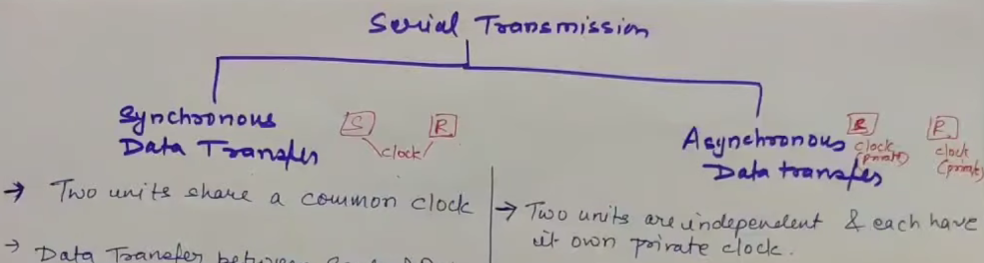 Serial Transmission
Synchronous
Data Transfer
S R
clock
→ Two units share a common clock
→ Data Transfer between
Asynchronous
Data transfer
R
clock
(private)
R
clock
(private)
→ Two units are independent & each have
it own private clock.